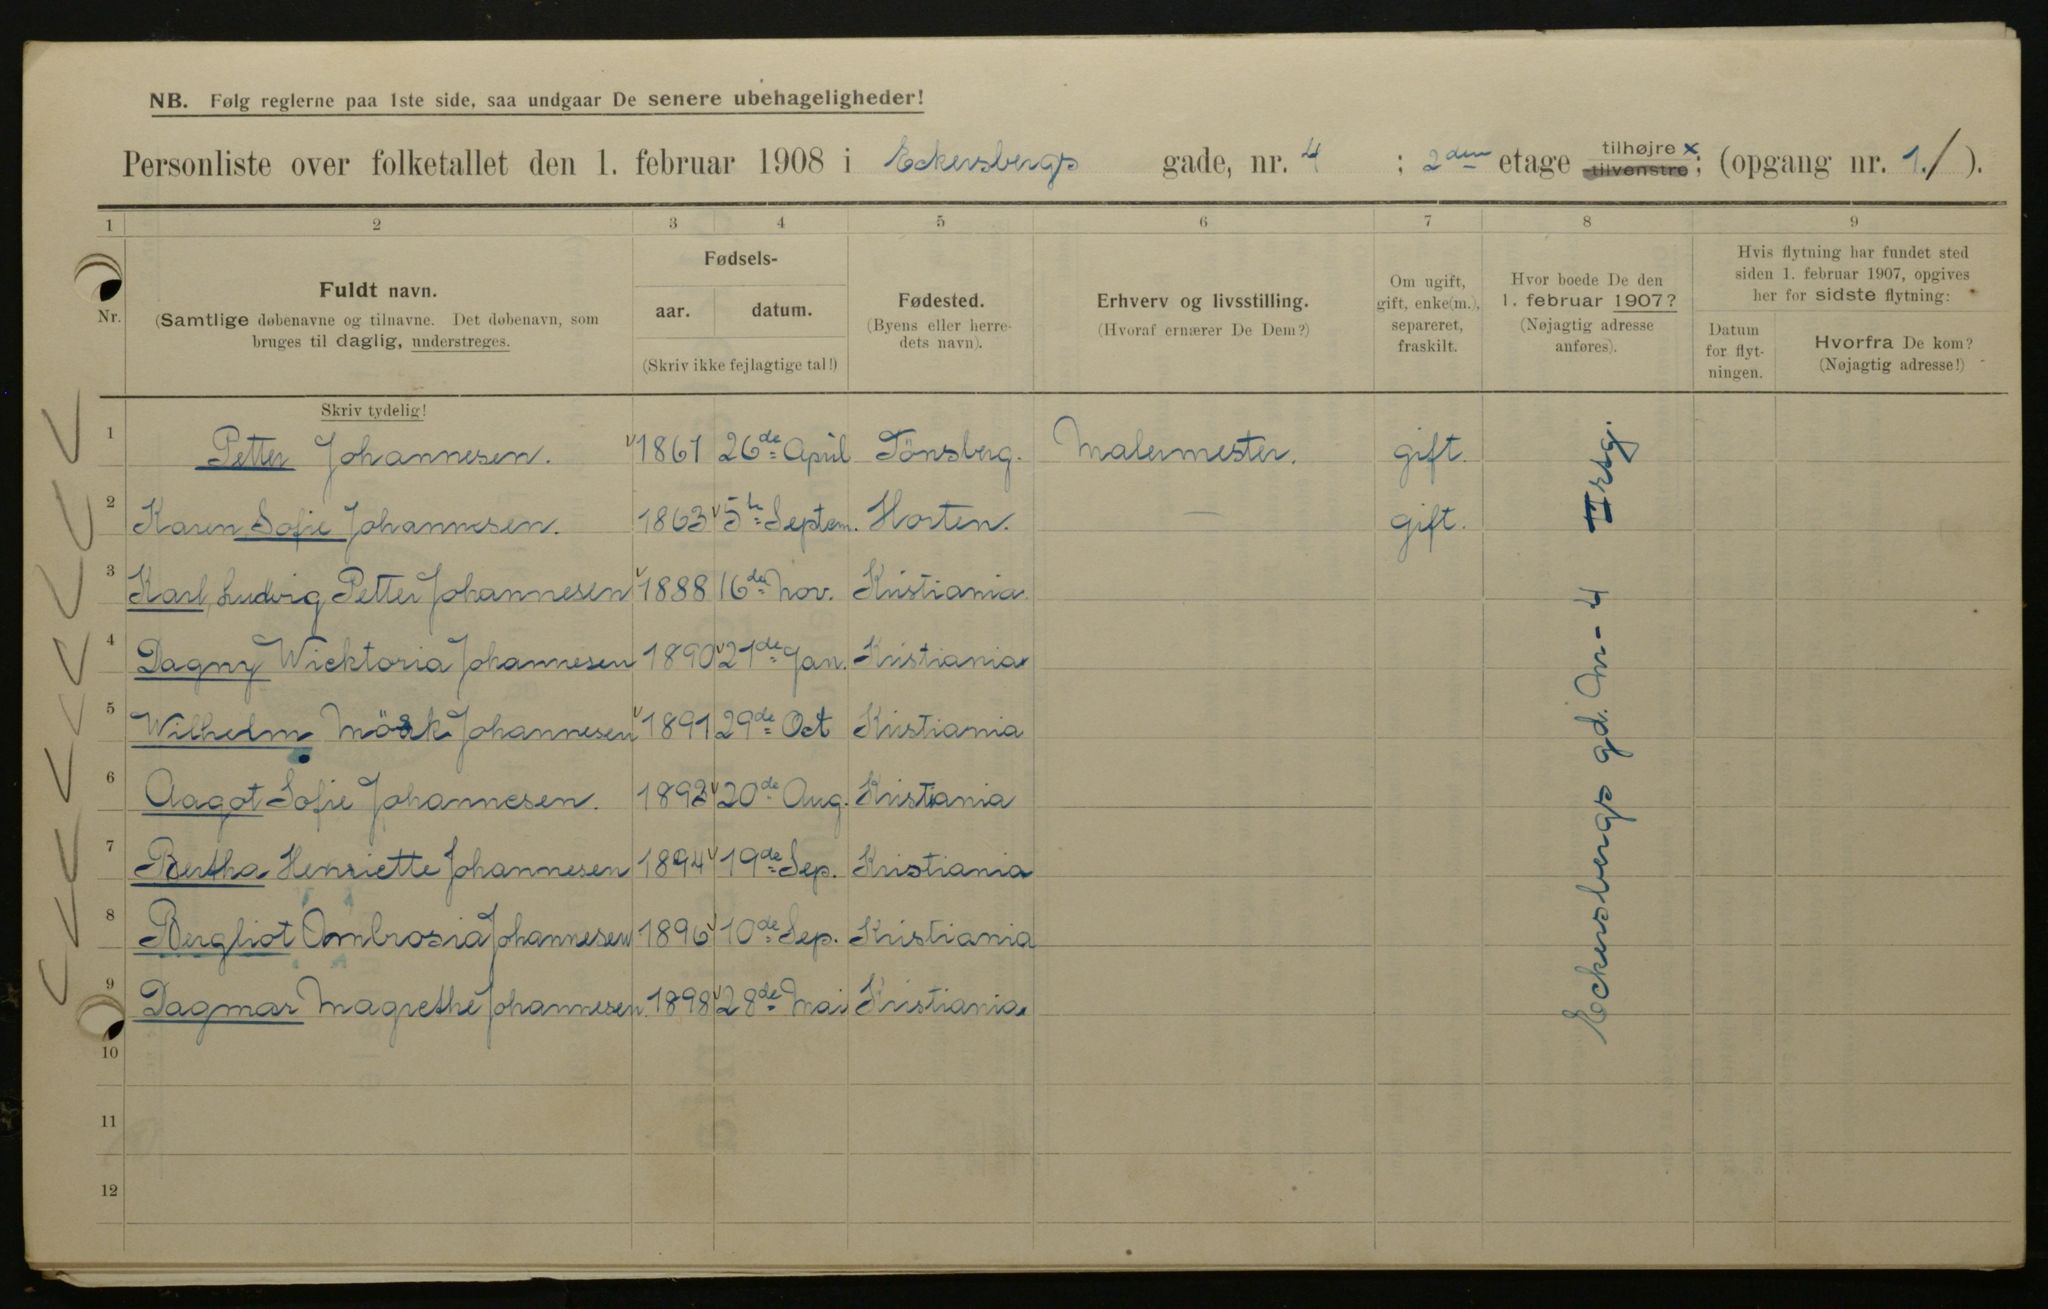 NB. Følg reglerne paa 1ste side, saa undgaar De senere ubehageligheder!
Personliste over folketallet den 1. februar 1908 i Eckersbergs gade, nr. 4 ; 2den etage tilhøjre x tilvenstre; (opgang nr. 1./ ).
1 2 3 4 5 6 7 8 9
Nr.
Fuldt navn.
(Samtlige døbenavne og tilnavne. Det døbenavn, som
bruges til daglig, understreges.
Fødsels-
aar. datum.
(Skriv ikke fejlagtige tal!)
Fødested.
(Byens eller herre-
dets navn).
Erhverv og livsstilling.
(Hvoraf ernærer De Dem?)
Om ugift,
gift, enke(m.),
separeret,
fraskilt.
Hvor boede De den
1. februar 1907?
(Nøjagtig adresse
anføres).
Hvis flytning har fundet sted
siden 1. februar 1907, opgives
her for sidste flytning:
Datum
for flyt-
ningen.
Hvorfra De kom?
(Nøjagtig adresse!)
Skriv tydelig!
1 Petter Johannesen. 1861 26de April Tönsberg. Malermester. gift.
2 Karen Sofie Johannesen. 1863 5te Septem. Horten. — gift.
3 Karl Ludvig Petter Johannesen 1888 16de Nov. Kristiania.
4 Dagny Wicktoria Johannesen 1890 21de Jan. Kristiania
5 Wilhelm Mörk Johannesen 1891 29de Oct Kristiania
6 Aagot Sofie Johannesen. 1893 20de Aug. Kristiania
7 Bertha Henriette Johannesen 1894 19de Sep. Kristiania
8 Bergliot Ambrosia Johannesen 1896 10de Sep. Kristiania
9 Dagmar Magrethe Johannesen. 1898 28de Mai Kristiania
10
11
12
Eckersbergs gd. Nr- 4 II